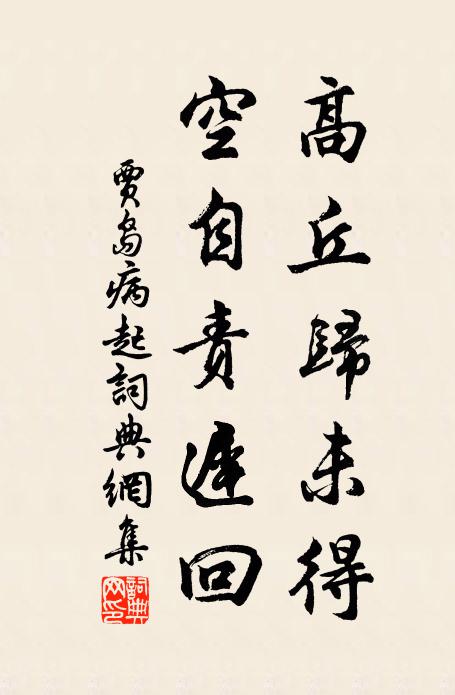 高丘歸未得
空自責遲回
賈島病起詞典網集
詞典
网印